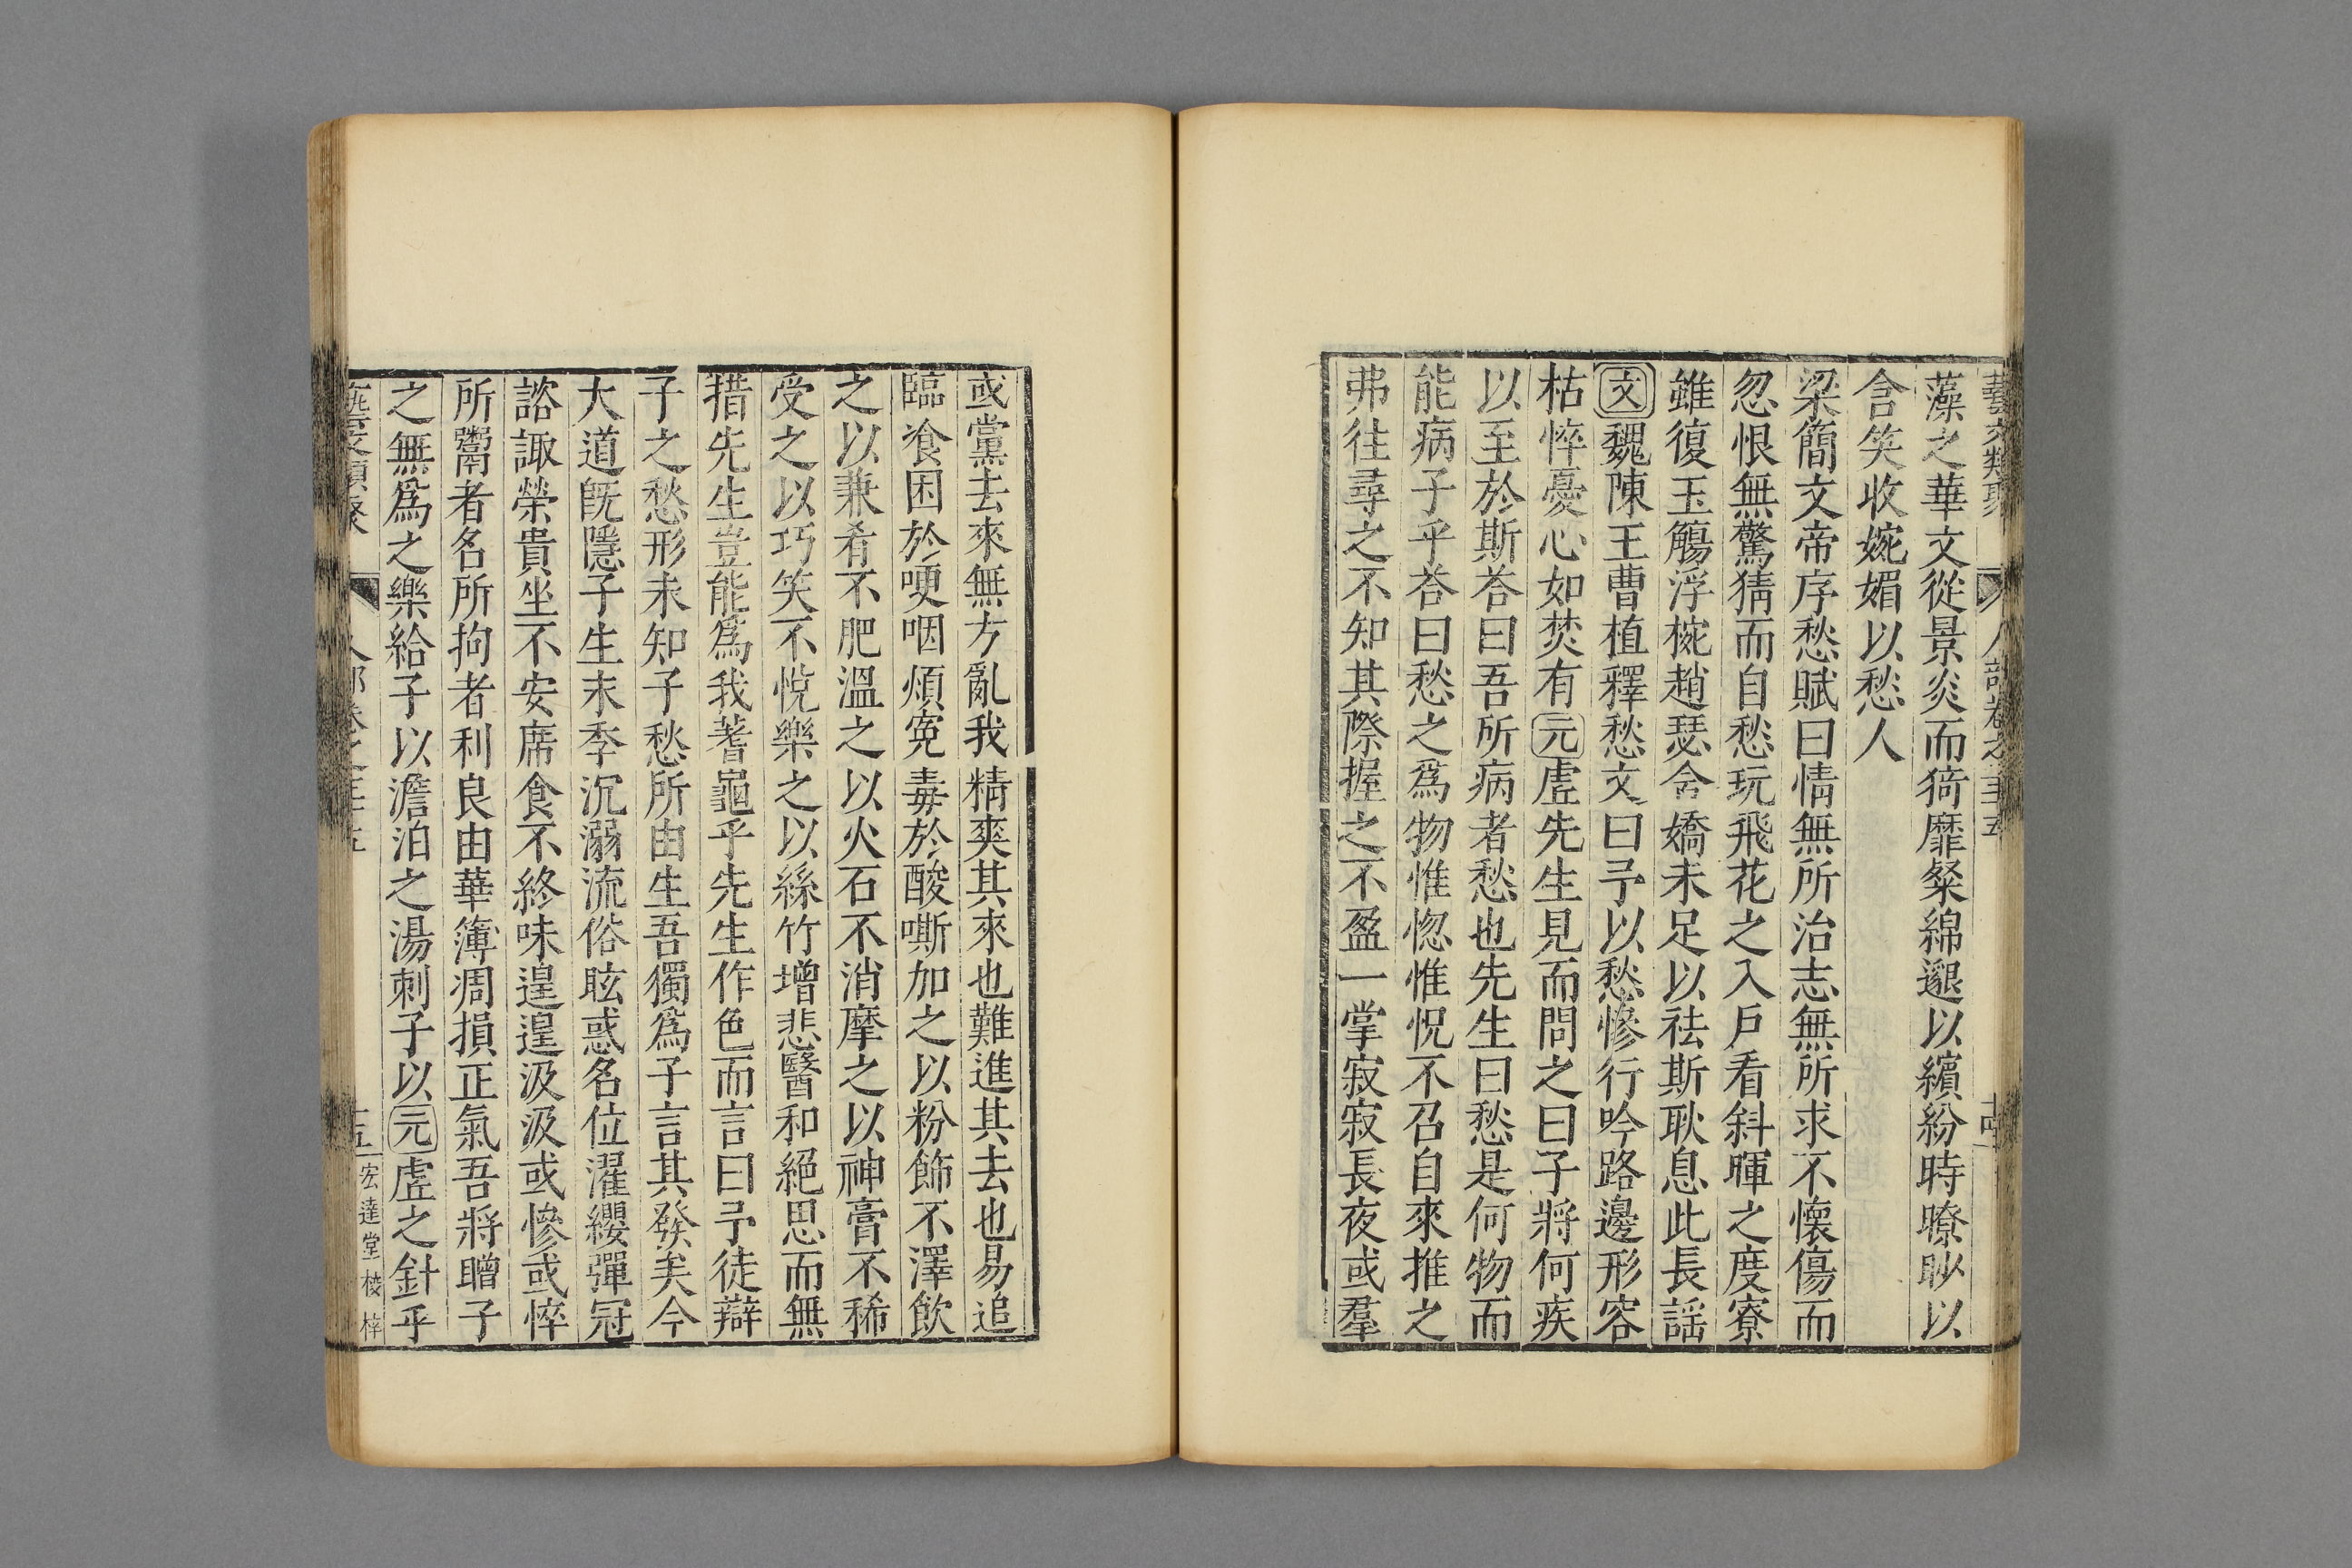 藝文類聚 人部卷之三十五
藻之華文從景炎而猗靡粲綿邈以繽紛時瞭眇以
含笑收婉媚以愁人
梁簡文帝序愁賦曰情無所治志無所求不懷傷而
忽恨無驚猜而自愁玩飛花之入戶看斜暉之度寮
雖復玉觴浮椀趙瑟含嬌未足以祛斯耿息此長謡
文魏陳王曹植釋愁文曰予以愁慘行吟路邊形容
枯悴憂心如焚有元虛先生見而問之曰子將何疾
以至於斯荅曰吾所病者愁也先生曰愁是何物而
能病子乎荅曰愁之爲物惟惚惟怳不召自來推之
弗往尋之不知其際握之不盈一掌寂寂長夜或羣
或黨去來無方亂我精爽其來也難進其去也易追
臨飡困於哽咽煩寃毒於酸嘶加之以粉飾不澤飲
之以兼肴不肥溫之以火石不消摩之以神膏不稀
受之以巧笑不悅樂之以絲竹增悲醫和絕思而無
措先生豈能爲我蓍龜乎先生作色而言曰予徒辯
子之愁形未知子愁所由生吾獨爲子言其發矣今
大道旣隱子生末季沉溺流俗眩惑名位濯纓彈冠
諮諏榮貴坐不安席食不終味遑遑汲汲或慘或悴
所鬻者名所拘者利良由華簿凋損正氣吾將贈子
之無爲之樂給子以澹泊之湯刺子以元虛之針乎
藝文類聚 人部卷之三十五 十五 宏達堂棱梓